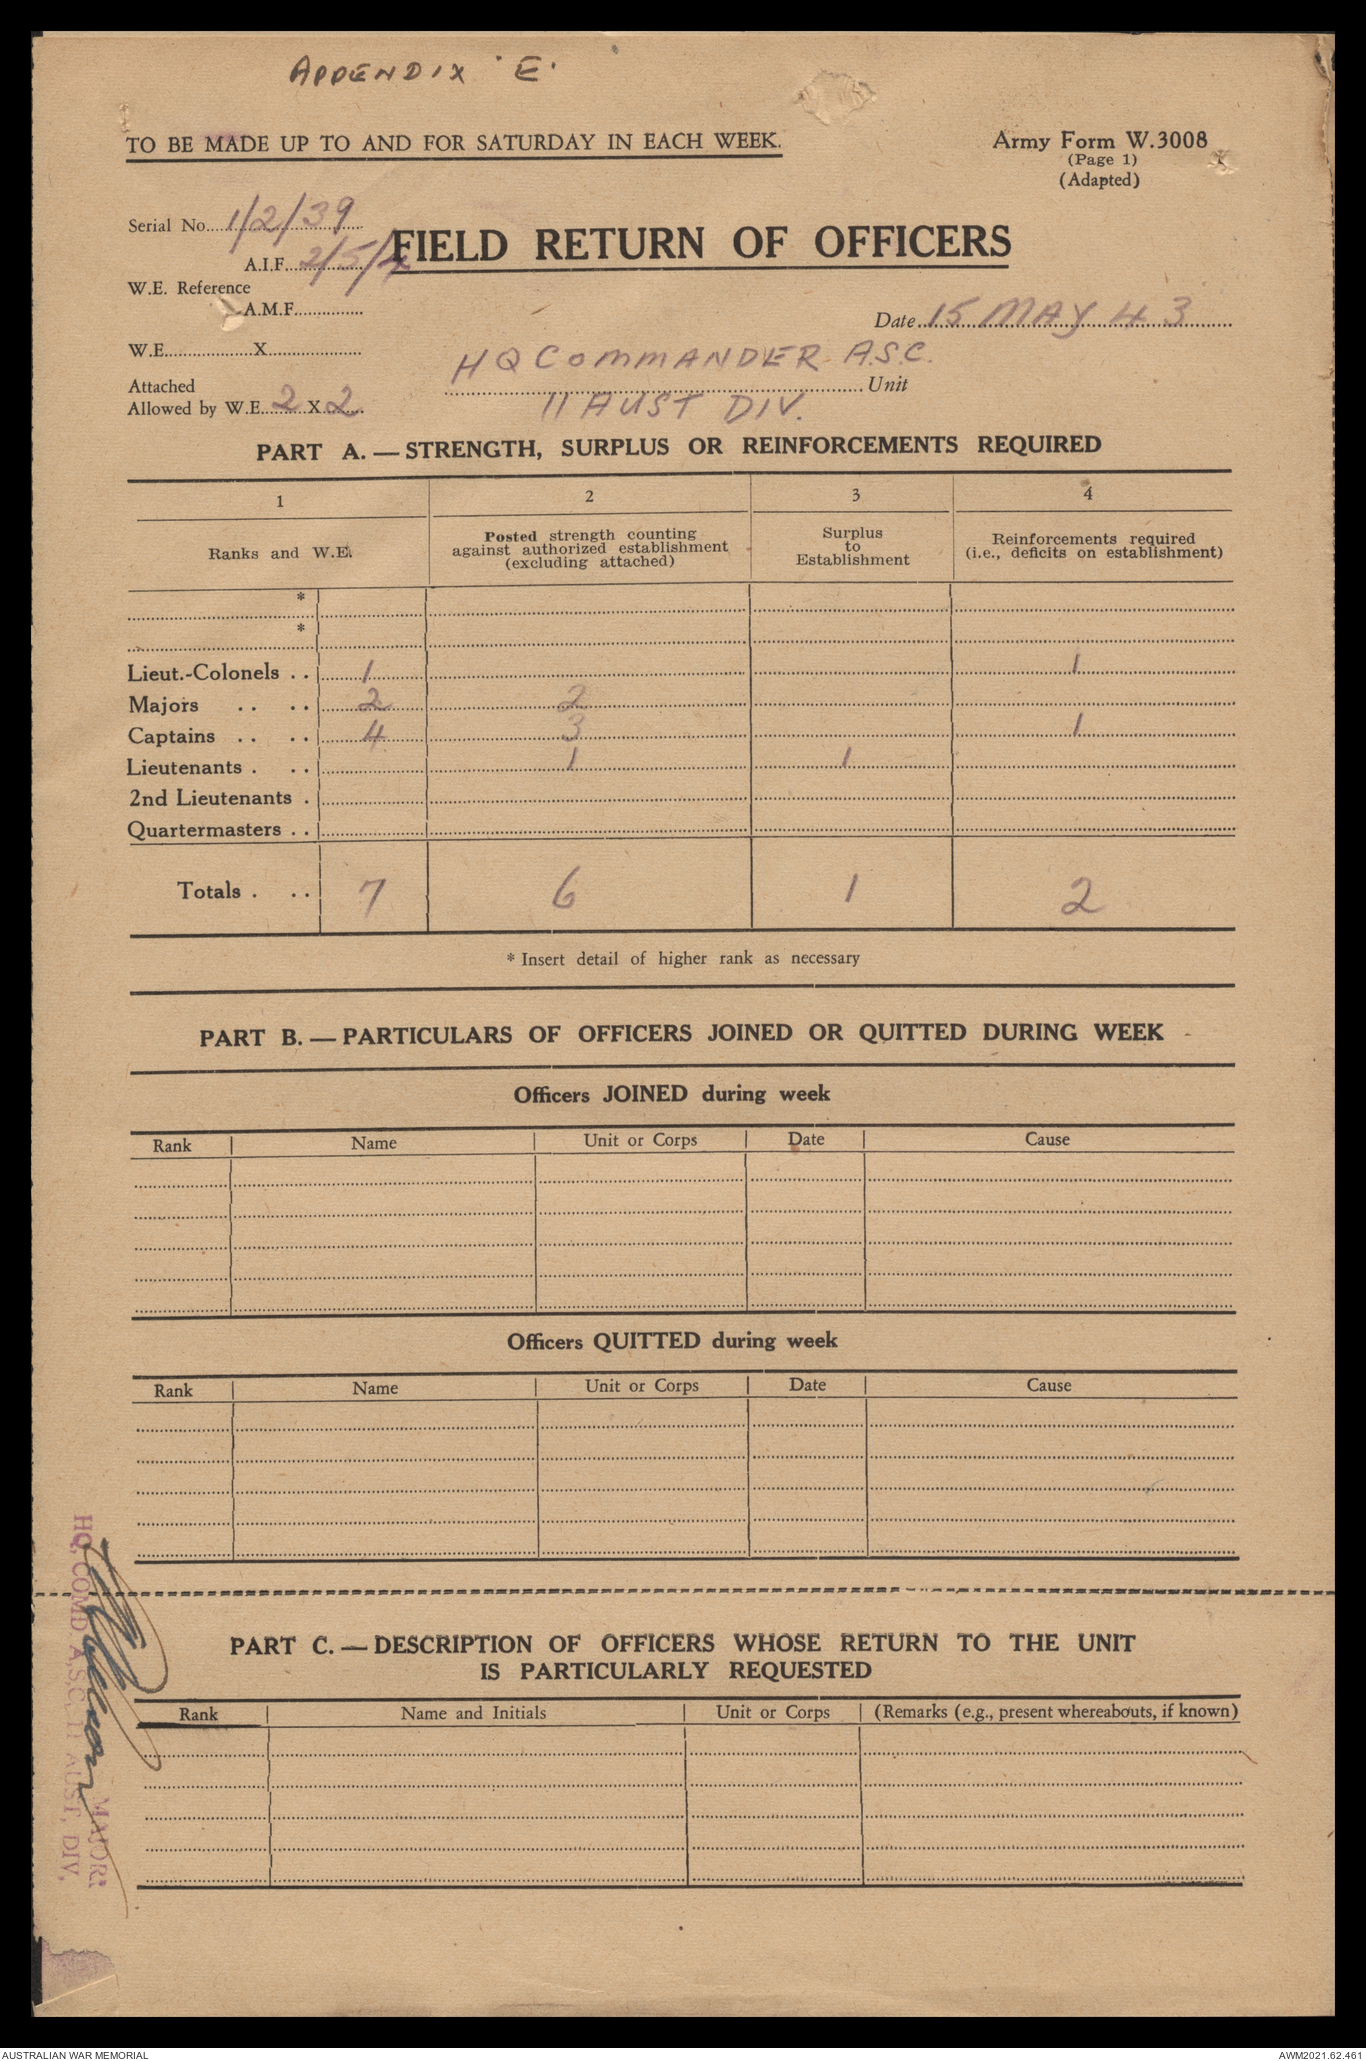 APPENDIX 'E'
TO BE MADE UP TO AND FOR SATURDAY IN EACH WEEK.
Army Form W.3008
(Page 1)
(Adapted)
Serial No. 1/2/39
FIELD RETURN OF OFFICERS
A.I.F. 2/5/4
W.E. Reference
A.M.F.
Date 15 MAY 43
W.E. X
HQ COMMANDER A.S.C.
Attached
Unit
Allowed by W.E. 2 X 2
11 AUST DIV.
PART A. — STRENGTH, SURPLUS OR REINFORCEMENTS REQUIRED
1 2 3 4
Ranks and W.E.
Posted strength counting
against authorized establishment
(excluding attached)
Surplus
to
Establishment
Reinforcements required
(i.e., deficits on establishment)
*
*
Lieut.-Colonels .. 1 1
Majors .. .. 2 2
Captains .. .. 4 3 1
Lieutenants . .. 1 1
2nd Lieutenants .
Quartermasters ..
Totals . .. 7 6 1 2
* Insert detail of higher rank as necessary
PART B. — PARTICULARS OF OFFICERS JOINED OR QUITTED DURING WEEK
Officers JOINED during week
Rank Name Unit or Corps Date Cause
Officers QUITTED during week
Rank Name Unit or Corps Date Cause
PART C. — DESCRIPTION OF OFFICERS WHOSE RETURN TO THE UNIT
IS PARTICULARLY REQUESTED
Rank Name and Initials Unit or Corps (Remarks (e.g., present whereabouts, if known)
MAJOR:
HQ, COMD A.S.C. 11 AUST. DIV,
AUSTRALIAN WAR MEMORIAL
AWM2021.62.461